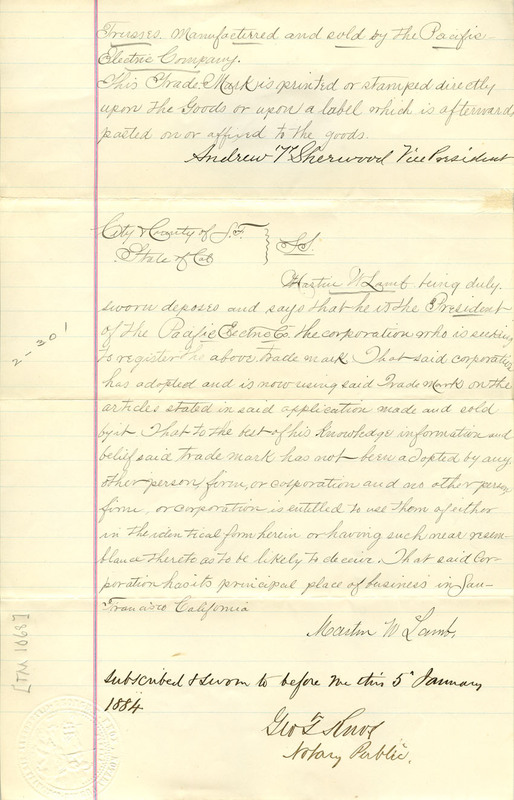 Trusses. Manufactured and sold by the Pacific
Electric Company.
This Trade Mark is printed or stamped directly
upon the Goods or upon a label which is afterwards
pasted on or affixed to the goods.
Andrew Sherwood Vice President
City & County of S.F.
State of Cal
S.S.
Martin W Lamb being duly
sworn deposes and says that he is the President
of the Pacific Electric Co. the corporation who is seeking
to register the above trade mark. That said corporation
has adopted and is now using said Trade Mark on the
articles stated in said application made and sold
by it. That to the best of his knowledge information and
belief said trade mark has not been adopted by any
other person, firm, or corporation and no other person
firm, or corporation is entitled to use them of either
in the identical form herein or having such near resem-
blance thereto as to be likely to deceive. That said Cor-
poration has its principal place of business in San-
Francisco California
Martin W Lamb.
Subscribed & sworn to before me this 5" January
1884
Geo T Knox
Notary Public.
2-30-
[TM 1068]